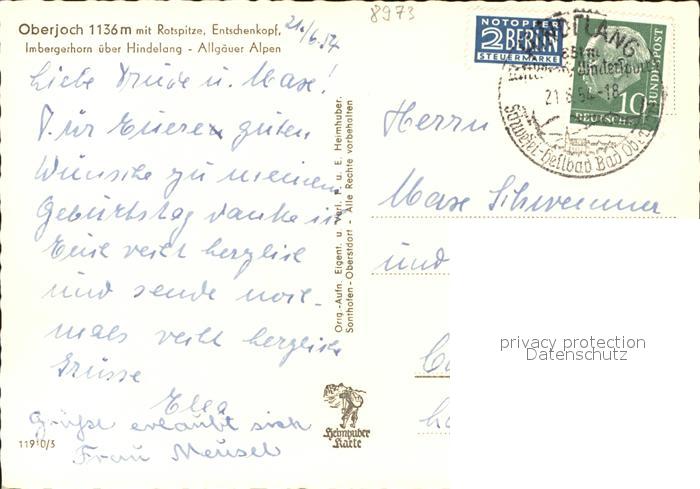 Oberjoch 1136m mit Rotspitze, Entschenkopf,
Imbergerhorn über Hindelang - Allgäuer Alpen
21./6.54
Liebe Trude u. Maxe!
Für Eueren guten
Wünsche zu meinem
Geburtstag danke ich
Euch recht herzlich
und sende noch-
mals recht herzliche
Grüsse
Elea
Grüße erlaubt sich
Frau Meusel
11910/5
Orig.-Aufn. Eigent. u. Verl. F. u. E. Heimhuber.
Sonthofen-Oberstdorf - Alle Rechte vorbehalten.
Heimhuber
Karte
8973
NOTOPFER
2 BERLIN
STEUERMARKE
HINDELANG
21.6.54-18
Schwefel-Heilbad Bad
10
DEUTSCHE
BUNDESPOST
Herrn
Maxe
und
privacy protection
Datenschutz